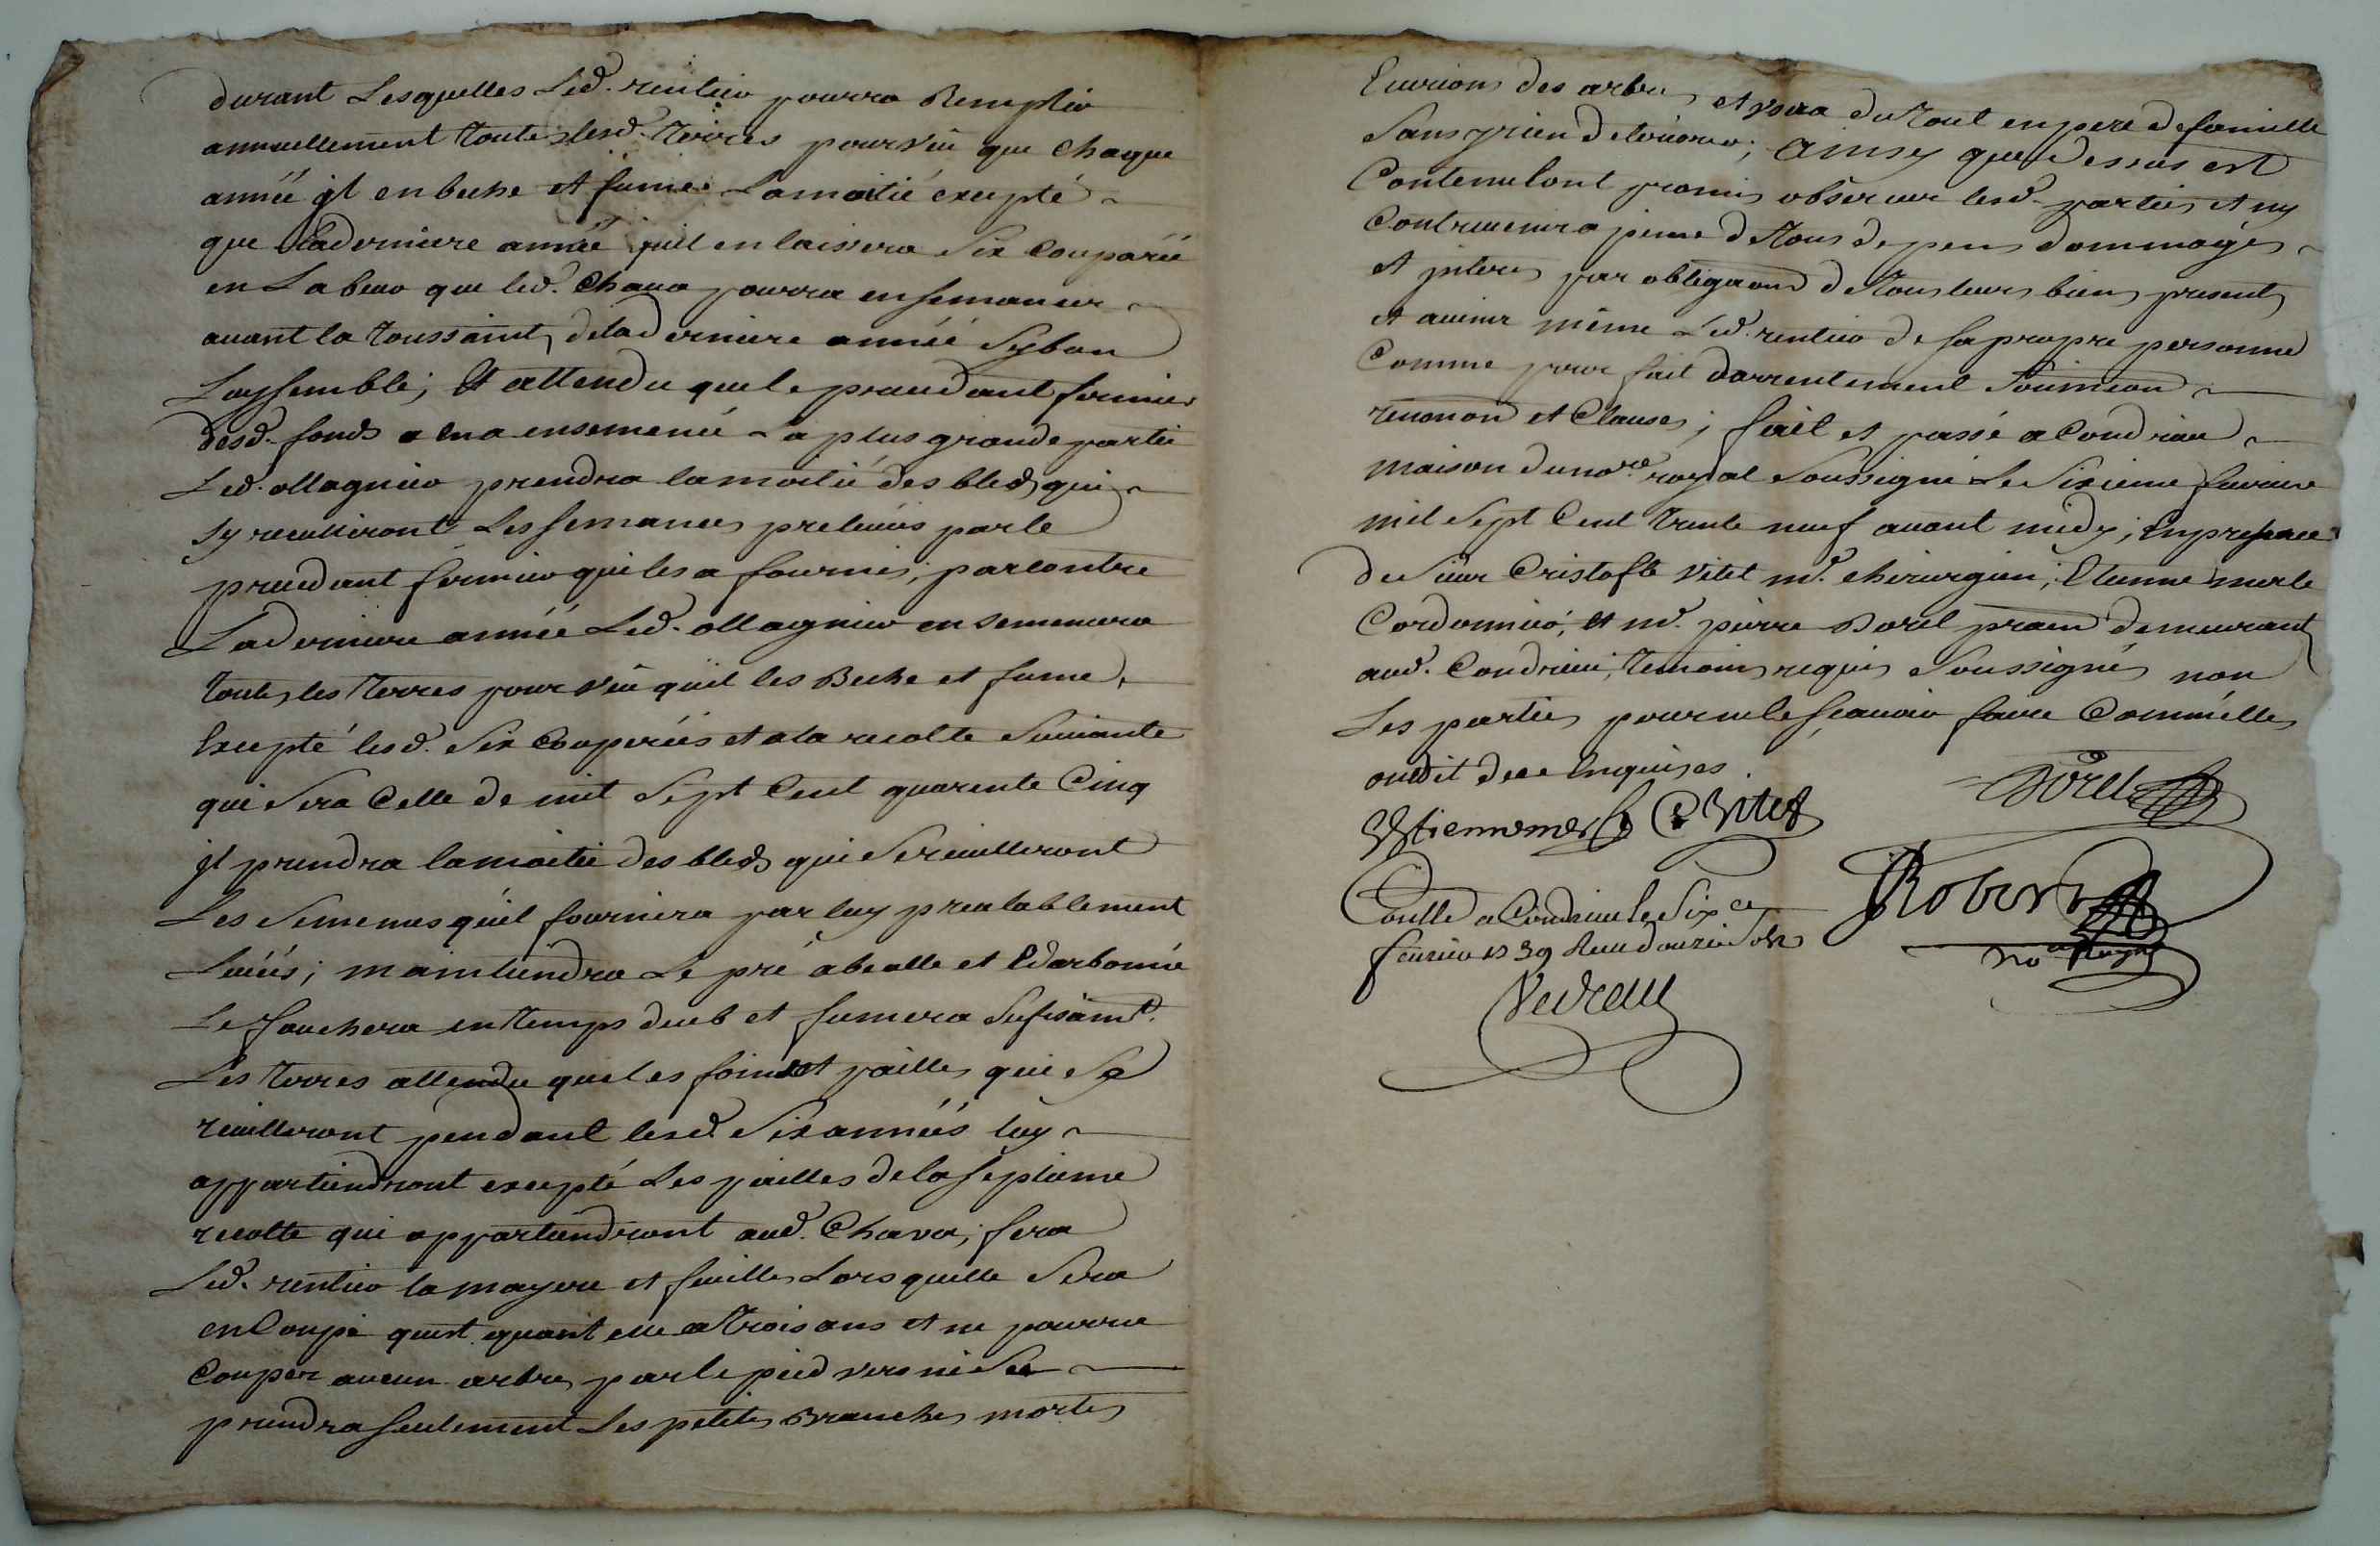 durant Lesquelles Led. rentier pourra Remplir
annuellement toutes lesd. terres pourvû que chaque
année jl en beche et fume la moitié excepté
que La derniere année quil en laissera Six Couparéé
en Labeur que led. Chava pourra ensemancer
auant la toussaint dela derniere année Sy bon
Luy semble; Et attendu que le precedant fermier
desd. fonds en a ensemencé La plus grande partie
Led. ollagnier prendra la moitié des bleds qui
sy recuilliront Les semances prelevéés par le
precedant fermier qui les a fournis; par contre
La derniere année Led. ollagnier ensemencera
toutes les terres pourvû quil les Beche et fume,
Excepté lesd. Six Couperéés et a la recolte Suivante
qui Sera Celle de mil Sept Cent quarente Cinq
jl prendra la moitié des bleds qui Se recuilleront
Les Semences quil fournira par luy prealablement
Levéés; maintiendra Le pré abealle et Edarbonné
Le fauchera en temps deub et fumera Sufisamt.
Les terres attendu que les foins et pailles qui Se
recuilleront pendant lesd. Six annéés luy
appartiendront excepté Les pailles de la septieme
recolte qui appartiendront aud. Chava; fera
Led. rentier la mayere et feuilles Lors quelle Sera
en Coupe quest quant elle a trois ans et ne pourra
Couper aucun arbres par le pied vers ni Sec
prendra seulement Les petites Branches mortes
Environs des arbres et usera du tout en pere de famille
Sans y rien deteriorer; ainsy que dessus est
Contenu l'ont promis observer lesd. parties et ny
Contrevenir a peine de tous depens dommages
et jnterets par obligaon de tous leurs biens presents
et avenir même Led. rentier de sa propre personne
Comme pour fait darrentement Soumion
renonon et Clauses; fait et passé a Condrieu
maison du nore. royal Soussigné Le Sixieme feuvrier
mil Sept Cent trente neuf avant midy; En presence
de Sieur Cristofle Vitet me. chirurgien; Etienne merle
Cordonnier, et me. pierre Borel praen demeurants
aud. Condrieu, temoins requis Soussignés non
Les parties pour ne le sçavoir faire Comm'elles
ont dit de ce Enquises.
Estienne merle C Vitet
Borel
Conllé a Condrieu le Six e
feuvrier 1739 Reçu douze Sols
Robert
nore Royal